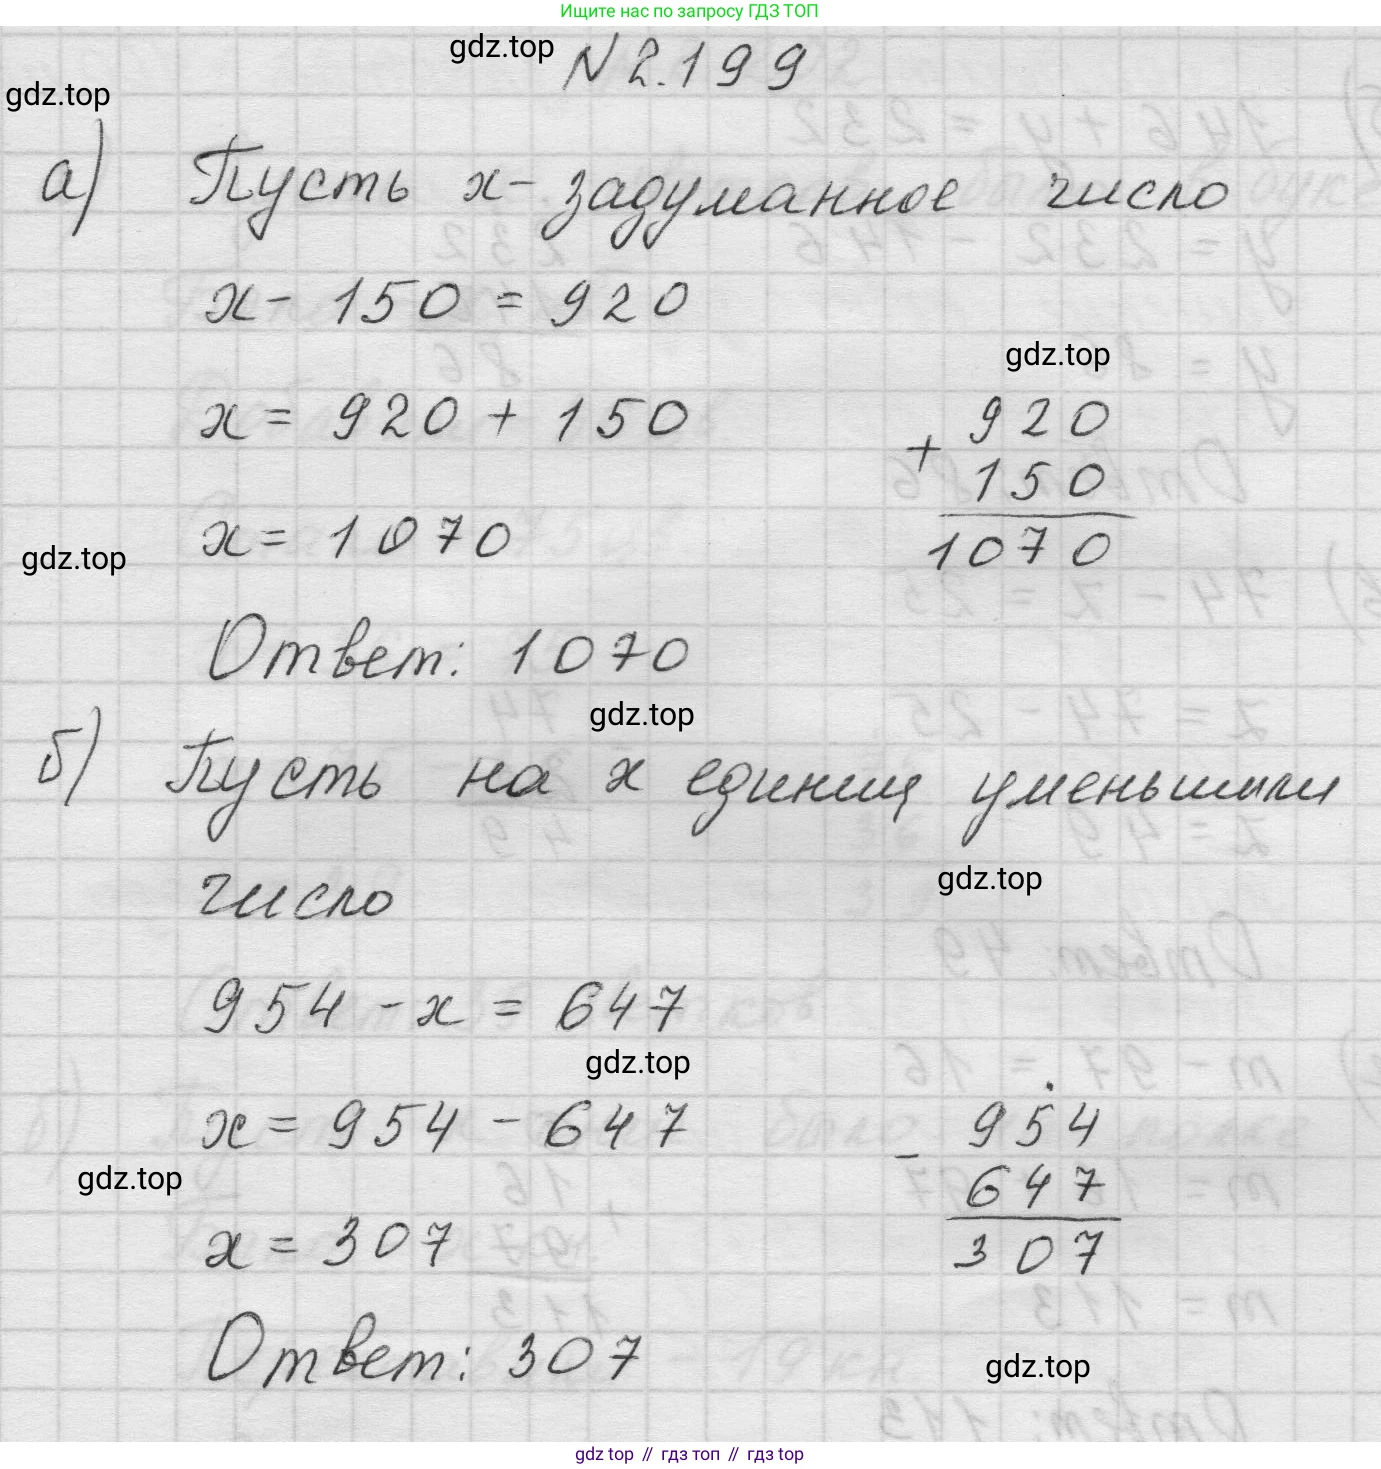 Ищите нас по запросу ГДЗ ТОП
gdz.top
N 2.199
gdz.top
а) Пусть x - задуманное число
x - 150 = 920
gdz.top
x = 920 + 150
920
+
150
1070
x = 1070
gdz.top
Ответ: 1070
gdz.top
б) Пусть на x единиц уменьшили
число
gdz.top
954 - x = 647
gdz.top
x = 954 - 647
954
-
647
307
gdz.top
x = 307
Ответ: 307
gdz.top
gdz top // гдз топ // гдз top